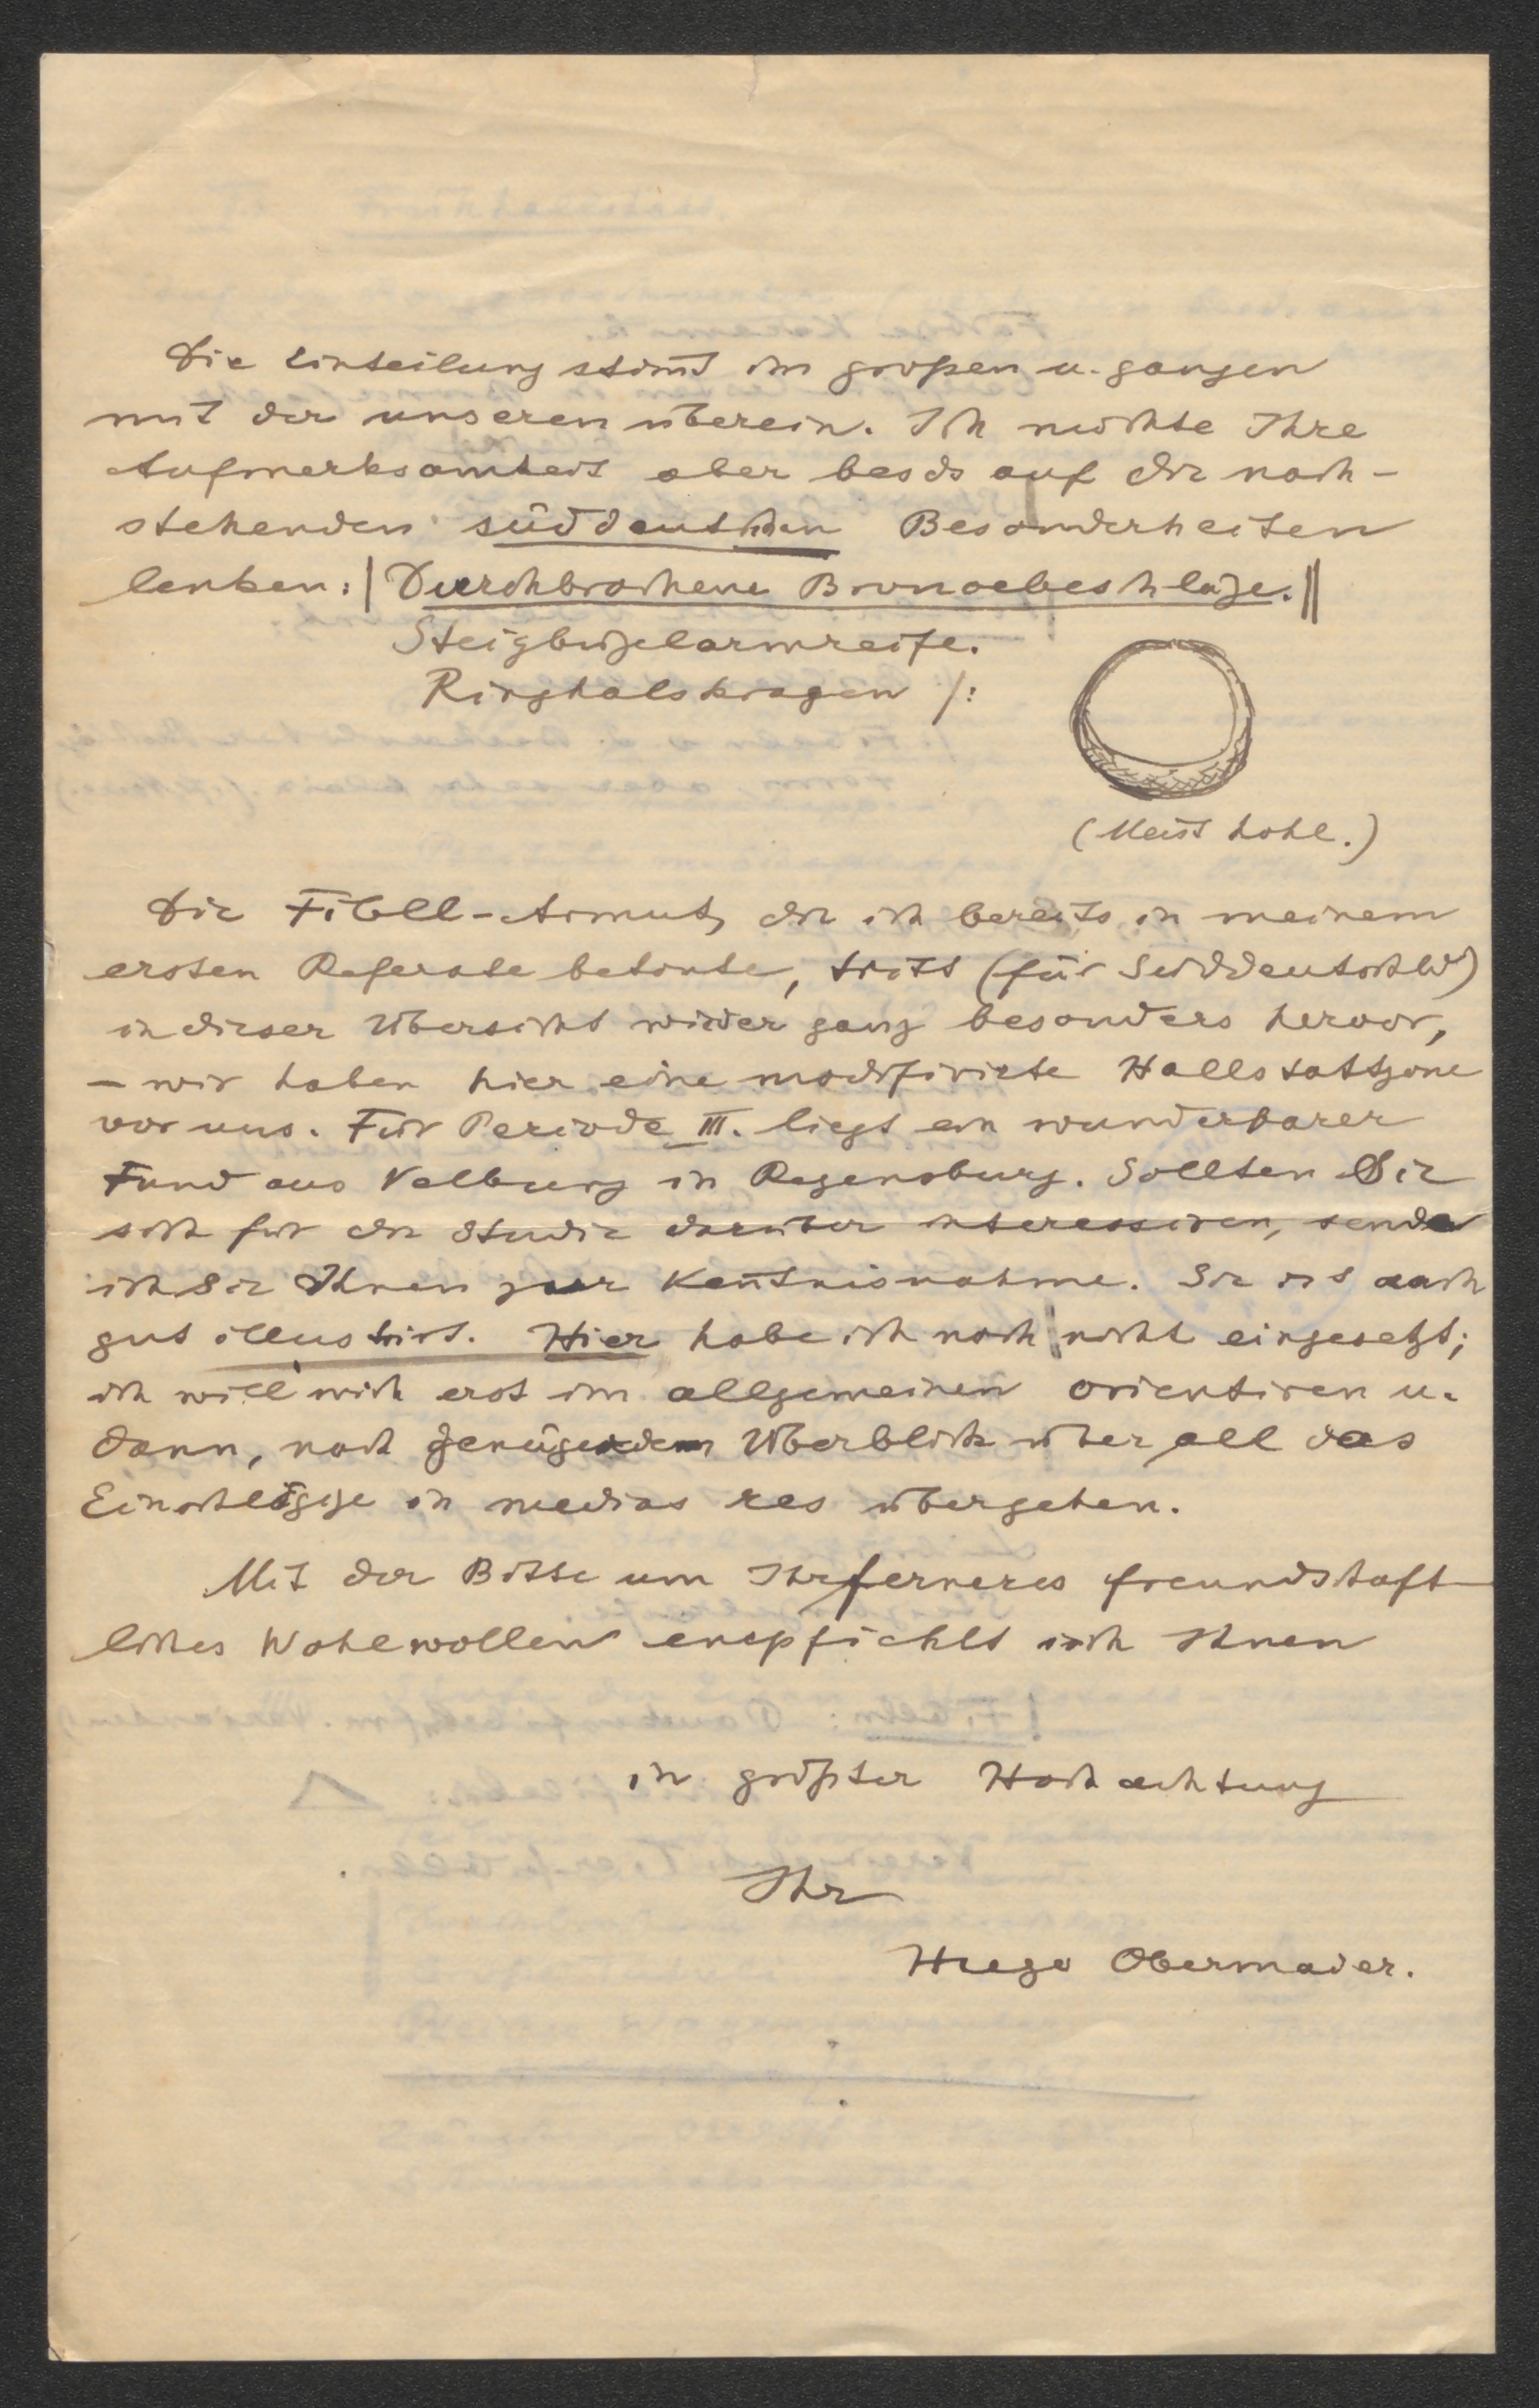 Die Einteilung stim̄t im großen u. ganzen
mit der unseren überein. Ich möchte Ihre
Aufmerksamkeit aber besds auf die nach-
stehenden süddeutschen Besonderheiten
lenken: | Durchbrochene Bronzebeschläge. ||
Steigbügelarmreife.
Ringhalskragen /:
(Meist hohl.)
Die Fibell-Armut, die ich bereits in meinem
ersten Referate betonte, tritt (für Süddeutschld)
in dieser Übersicht wieder ganz besonders hervor,
– wir haben hier eine modifizirte Hallstattzone
vor uns. Für Periode III. liegt ein wunderbarer
Fund aus Velburg in Regensburg. Sollten Sie
sich für die Studie darüber interessiren, sende
ich sie Ihnen zur Ken̄tnisnahme. Sie ist auch
gut illustrirt. Hier habe ich noch nicht eingesetzt;
ich will mich erst im allgemeinen orientiren u.
dann, nach genügendem Überblick über all das
Einschlägige in medias res übergehen.
Mit der Bitte um Ihr ferneres freundschaft
liches Wohlwollen empfiehlt sich Ihnen
in größter Hochachtung
Ihr
Hugo Obermaier.